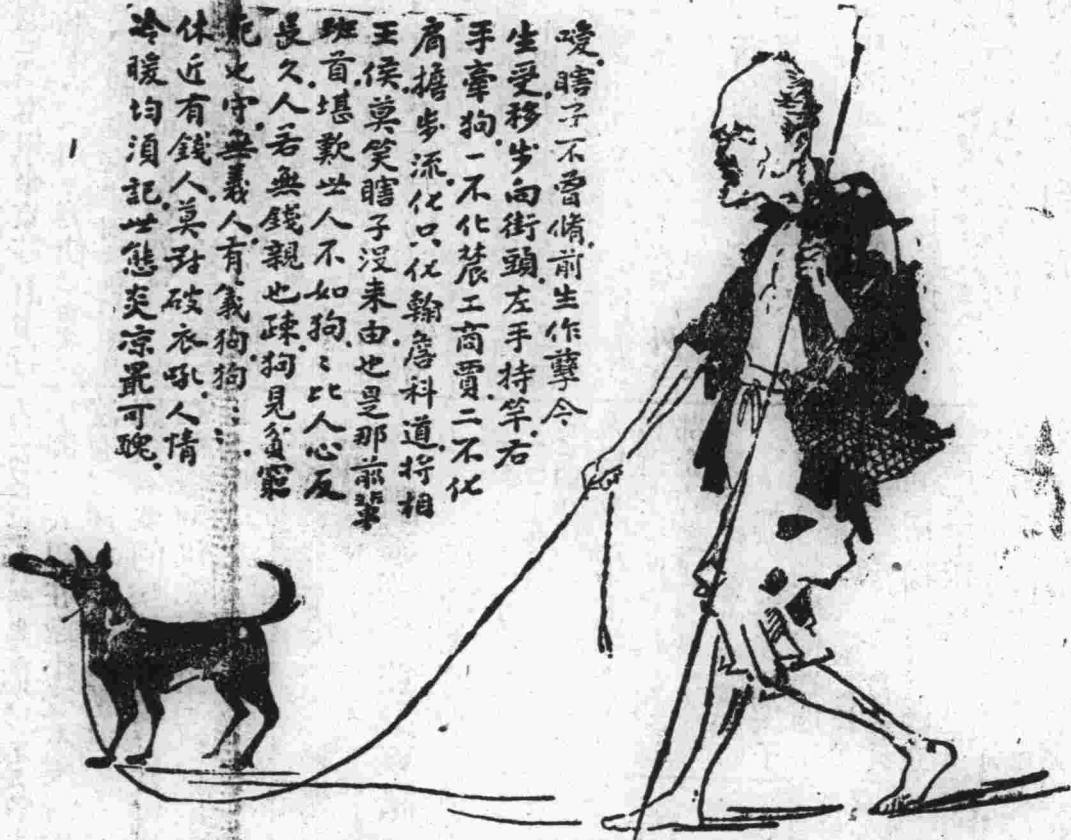 噯.瞎子不曾脩.前生作孽今
生受.移步向街頭.左手持竿.右
手牽狗.一不化農工商賈.二不化
肩擔步流.化只化翰詹科道.將相
王侯.莫笑瞎子没来由.也是那前輩
班首.堪歎世人不如狗.狗比人心反
長久.人若無錢親也疎.狗見貧窮
死也守.無義人.有義狗.狗...
休近有錢人.莫對破衣吼.人情
冷暖均須記.世態炎凉最可醜.